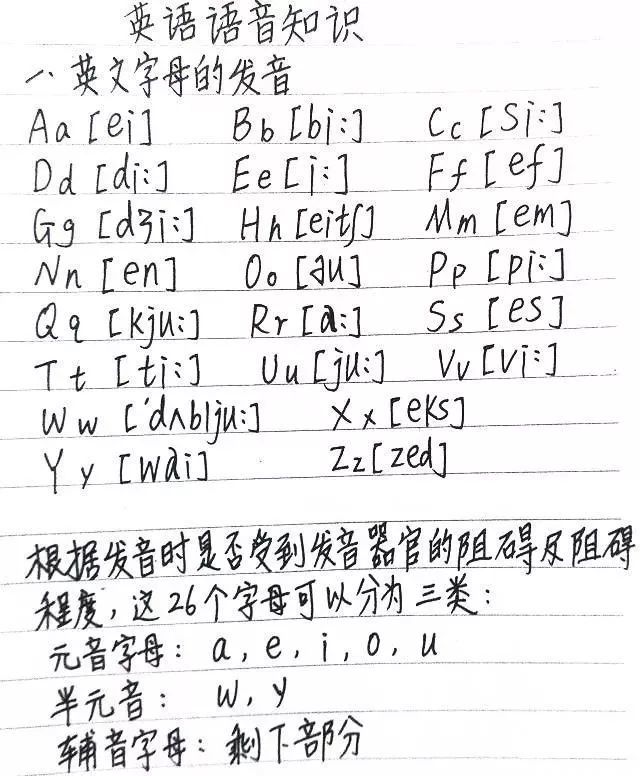 英语语音知识
一、英文字母的发音
Aa [ei] Bb [bi:] Cc [Si:]
Dd [di:] Ee [i:] Ff [ef]
Gg [dʒi:] Hh [eitʃ] Mm [em]
Nn [en] Oo [əu] Pp [pi:]
Qq [kju:] Rr [a:] Ss [es]
Tt [ti:] Uu [ju:] Vv [vi:]
Ww ['dʌblju:] Xx [eks]
Yy [wai] Zz [zed]
根据发音时是否受到发音器官的阻碍及阻碍
程度,这26个字母可以分为三类:
元音字母: a, e, i, o, u
半元音: w, y
辅音字母: 剩下部分